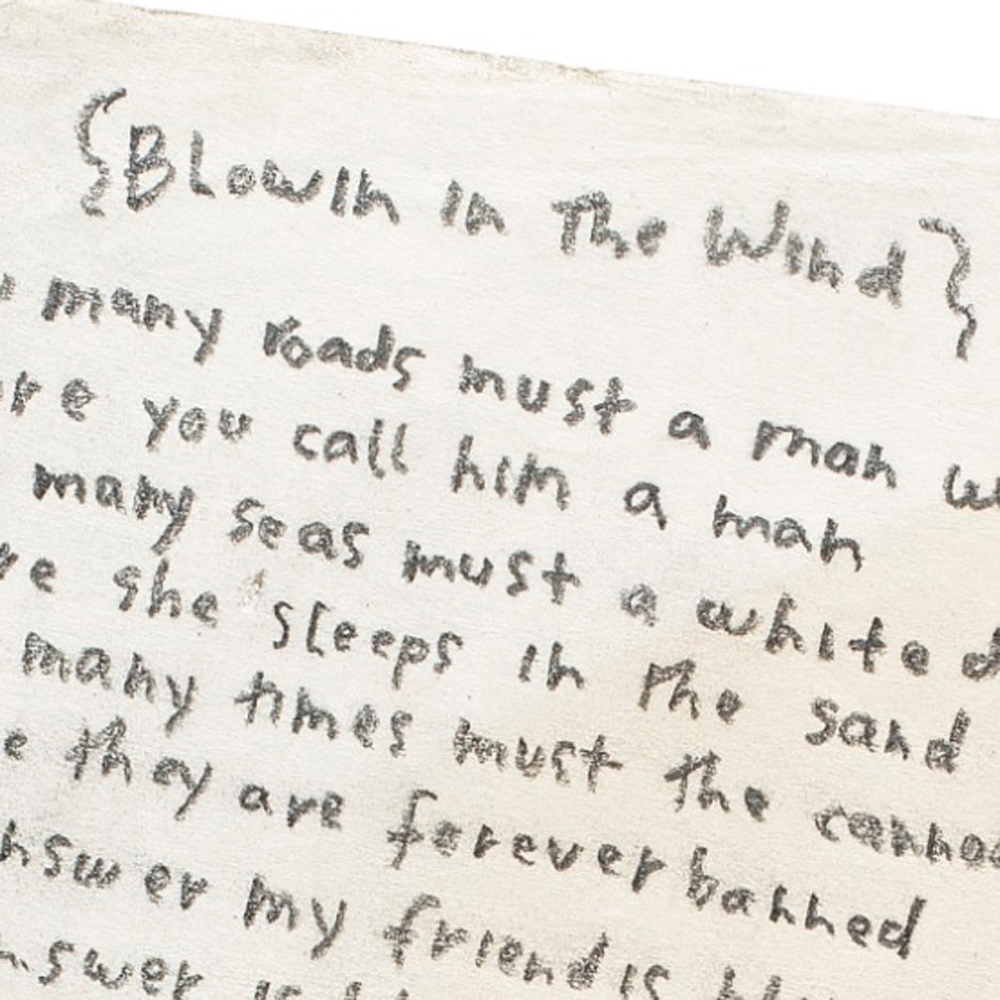 {Blowin in The Wind}
many roads must a man w
re you call him a man
many seas must a white d
re she sleeps in the sand
many times must the canno
e they are forever banned
nswer my friend is bl
nswer is bl